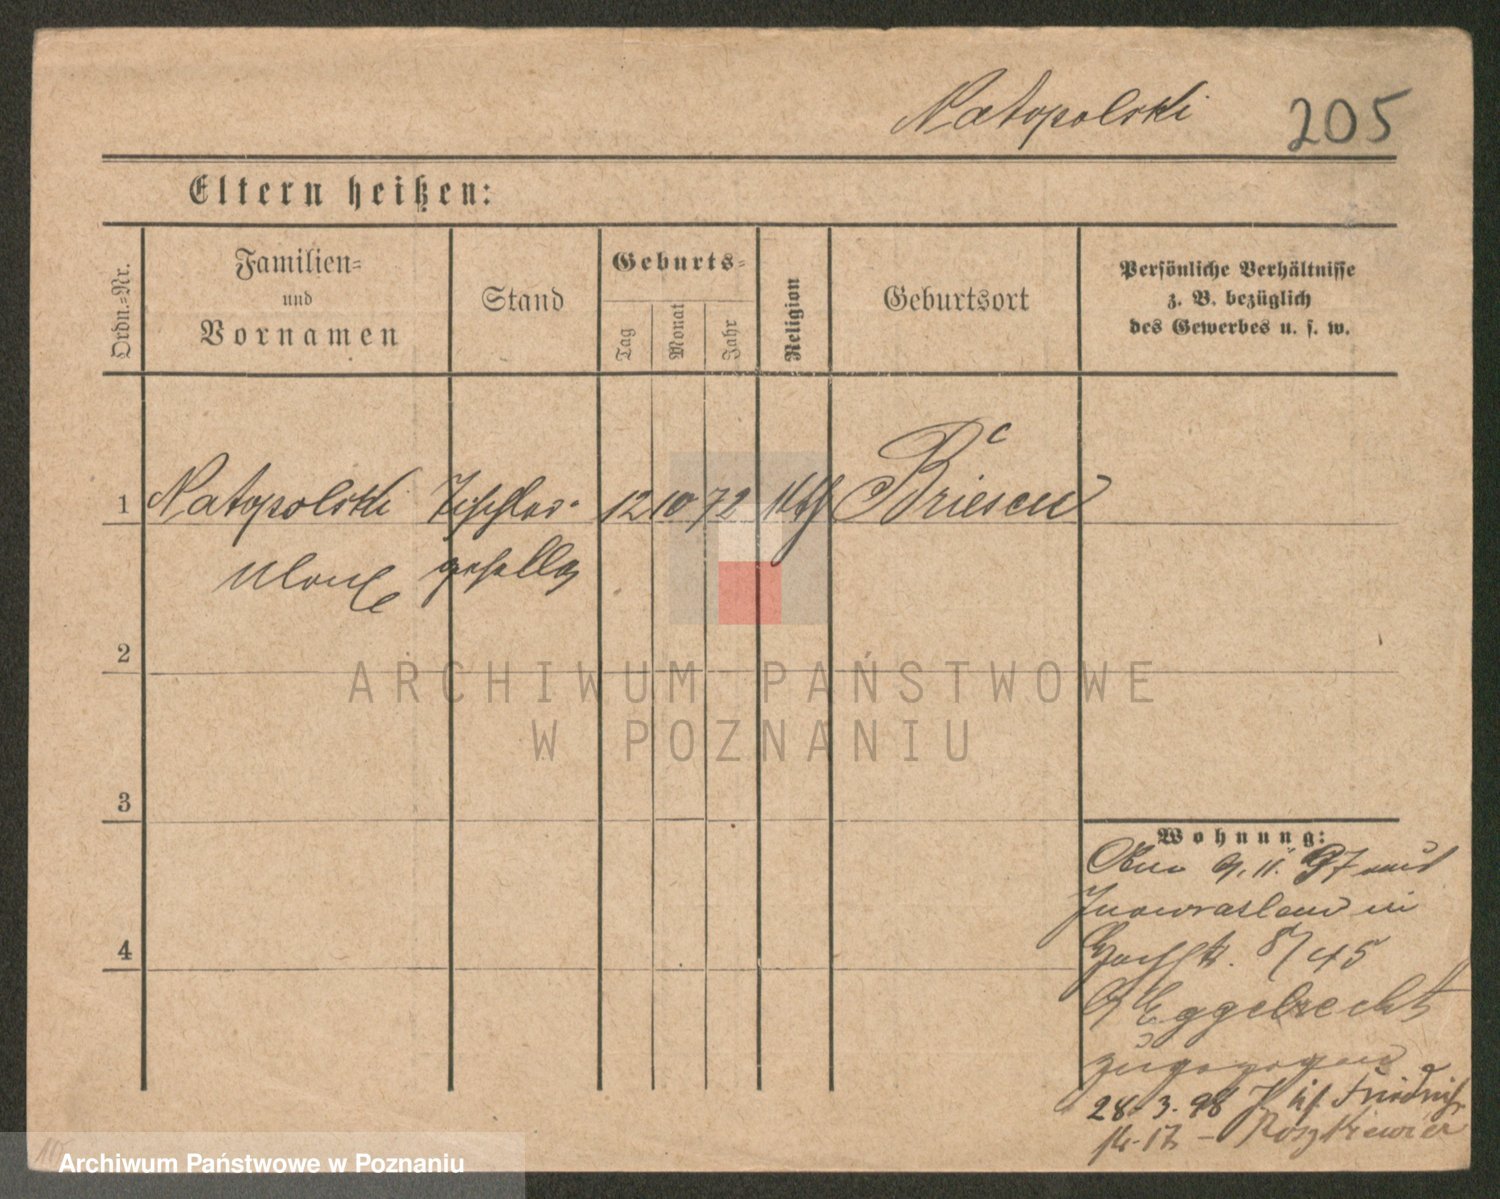 Natopolski 205
Eltern heißen:
Ordn.-Nr.
Familien-
und
Vornamen
Stand
Geburts-
Tag
Monat
Jahr
Religion
Geburtsort
Persönliche Verhältnisse
z. B. bezüglich
des Gewerbes u. s. w.
1 Natopolski Tischler- 12 10 72 kth Briesen
geselle
2
3
4
Wohnung:
11. 97 aus
Inowrazlaw in
8/45
Eggebrecht
zugezogen
28. 3. 98 Friedrich
17 - Roszkiewicz
ARCHIWUM PAŃSTWOWE
W POZNANIU
Archiwum Państwowe w Poznaniu